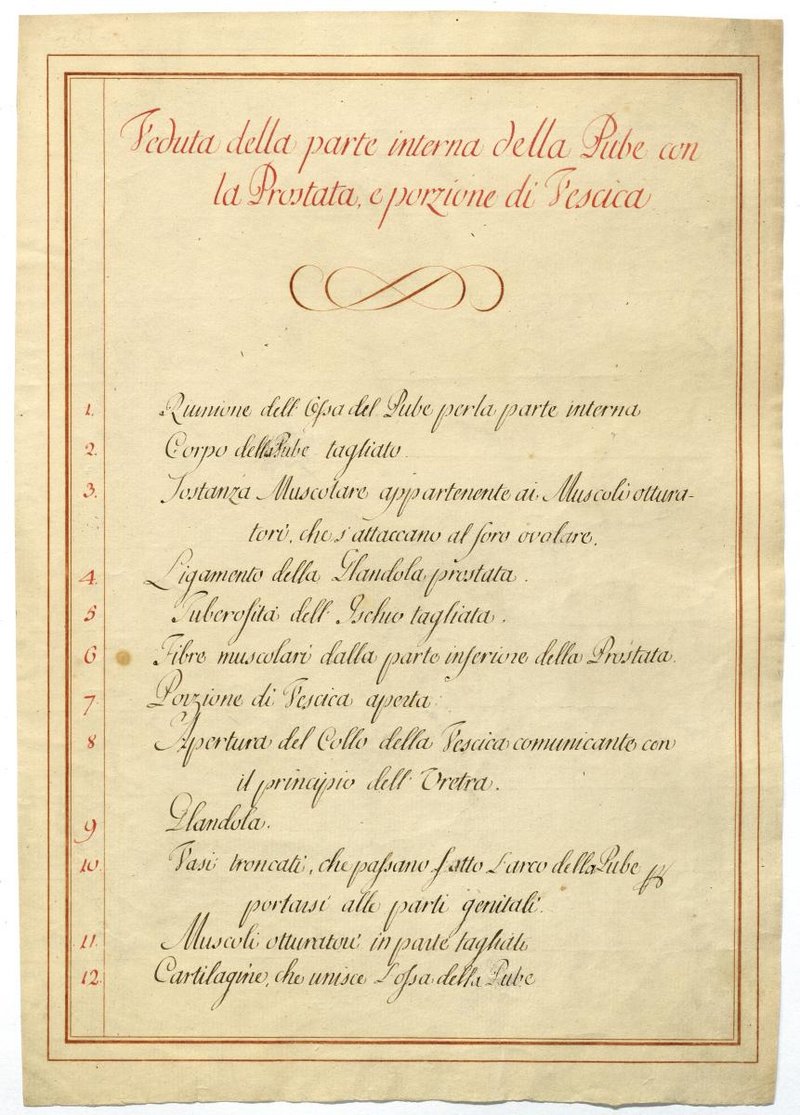 Veduta della parte interna della Pube con
la Prostata, e porzione di Vescica
1. Riunione dell' Ossa del Pube per la parte interna
2. Corpo della Pube tagliato.
3. Sostanza Muscolare appartenente ai Muscoli ottura-
tori, che s'attaccano al foro ovolare.
4. Ligamento della Glandola prostata.
5 Tuberosità dell' Ischio tagliata.
6 Fibre muscolari dalla parte inferiore della Prostata.
7 Porzione di Vescica aperta.
8 Apertura del Collo della Vescica comunicante con
il principio dell' Uretra.
9 Glandola.
10. Vasi troncati, che passano sotto l'arco della Pube
portarsi alle parti genitali.
11. Muscoli otturatori in parte tagliati
12. Cartilagine, che unisce l'ossa della Pube